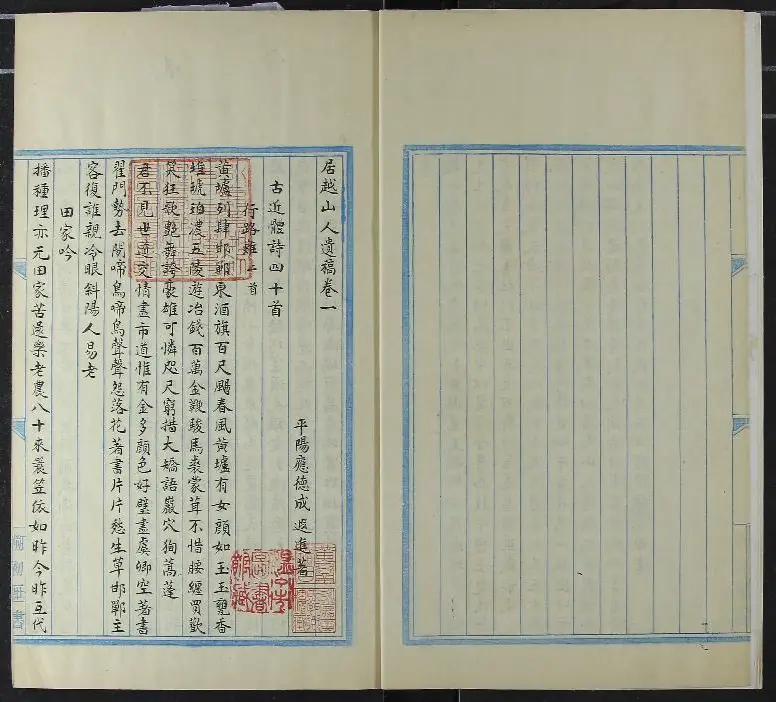 居越山人遺稿卷一
平陽應德成遐進著
古近體詩四十首
行路難二首
黃壚列肆邯鄲東酒旗百尺颺春風黃壚有女顏如玉玉甕香
堆琥珀濃五陵遊冶錢百萬金鞍駿馬裘蒙茸不惜腰纏買歡
笑狂歌艷舞誇豪雄可憐咫尺窮措大嬌語巖穴狥蒿蓬
君不見世途交情盡市道惟有金多顏色好壁盡虞卿空著書
翟門勢去鬧啼鳥啼鳥聲聲怨落花著書片片愁生草邯鄲主
客復誰親冷眼斜陽人易老
田家吟
播種理亦元田家苦是樂老農八十來蓑笠依如昨今昨互代